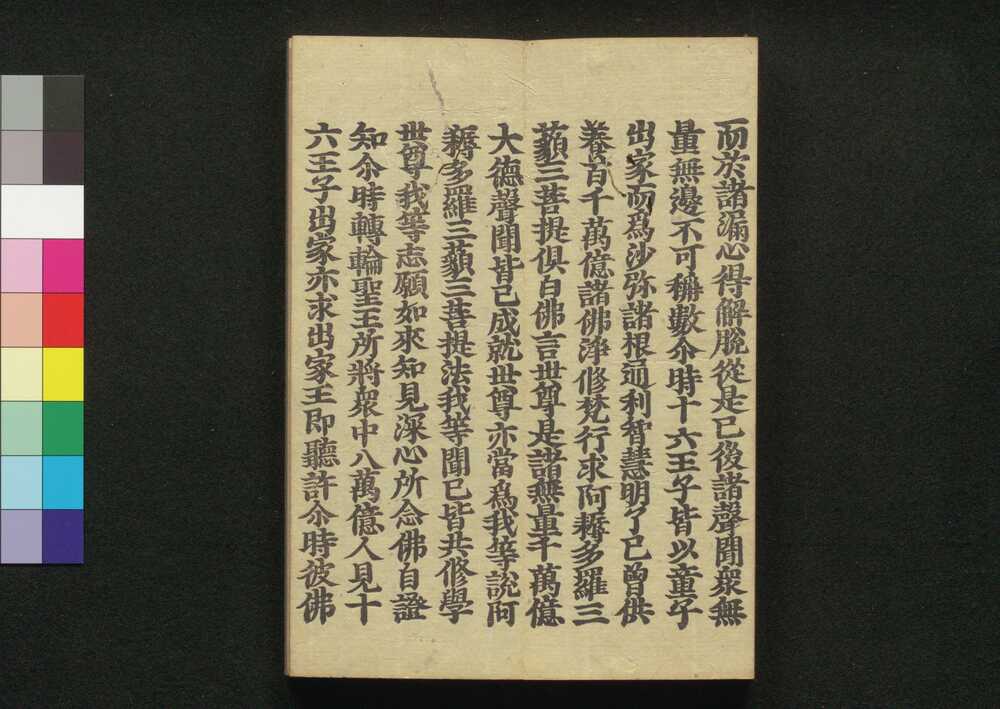 而於諸漏心得解脫從是已後諸聲聞衆無
量無邊不可稱數尒時十六王子皆以童子
出家而爲沙弥諸根通利智慧明了已曾供
養百千萬億諸佛淨修梵行求阿耨多羅三
藐三菩提俱白佛言世尊是諸無量千萬億
大德聲聞皆已成就世尊亦當爲我等說阿
耨多羅三藐三菩提法我等聞已皆共修學
世尊我等志願如來知見深心所念佛自證
知尒時轉輪聖王所將衆中八萬億人見十
六王子出家亦求出家王即聽許尒時彼佛